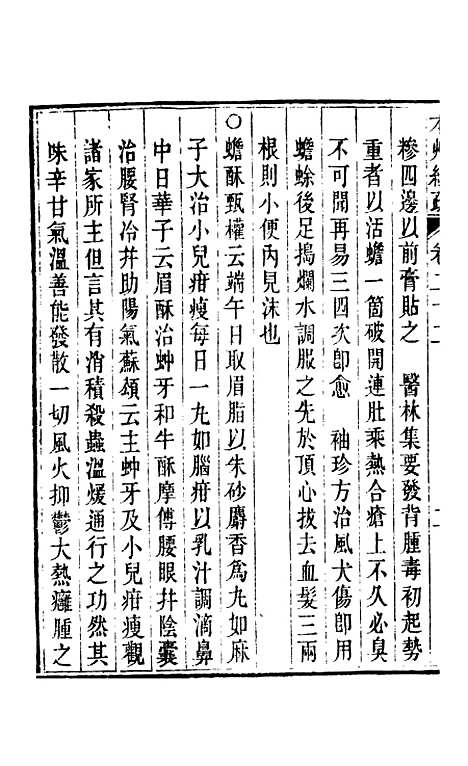 本艸經疏 卷二十二
糝四邊以前膏貼之 醫林集要發背腫毒初起勢
重者以活蟾一箇破開連肚乘熱合瘡上不久必臭
不可聞再易三四次卽愈 袖珍方治風犬傷卽用
蟾蜍後足搗爛水調服之先於頂心拔去血髮三兩
根則小便內見沫也
○蟾酥甄權云端午日取眉脂以朱砂麝香爲丸如麻
子大治小兒疳瘦每日一丸如腦疳以乳汁調滴鼻
中日華子云眉酥治蚛牙和牛酥摩傅腰眼幷陰囊
治腰腎冷幷助陽氣蘇頌云主蚛牙及小兒疳瘦觀
諸家所主但言其有消積殺蟲溫煖通行之功然其
味辛甘氣溫善能發散一切風火抑鬱大熱癰腫之